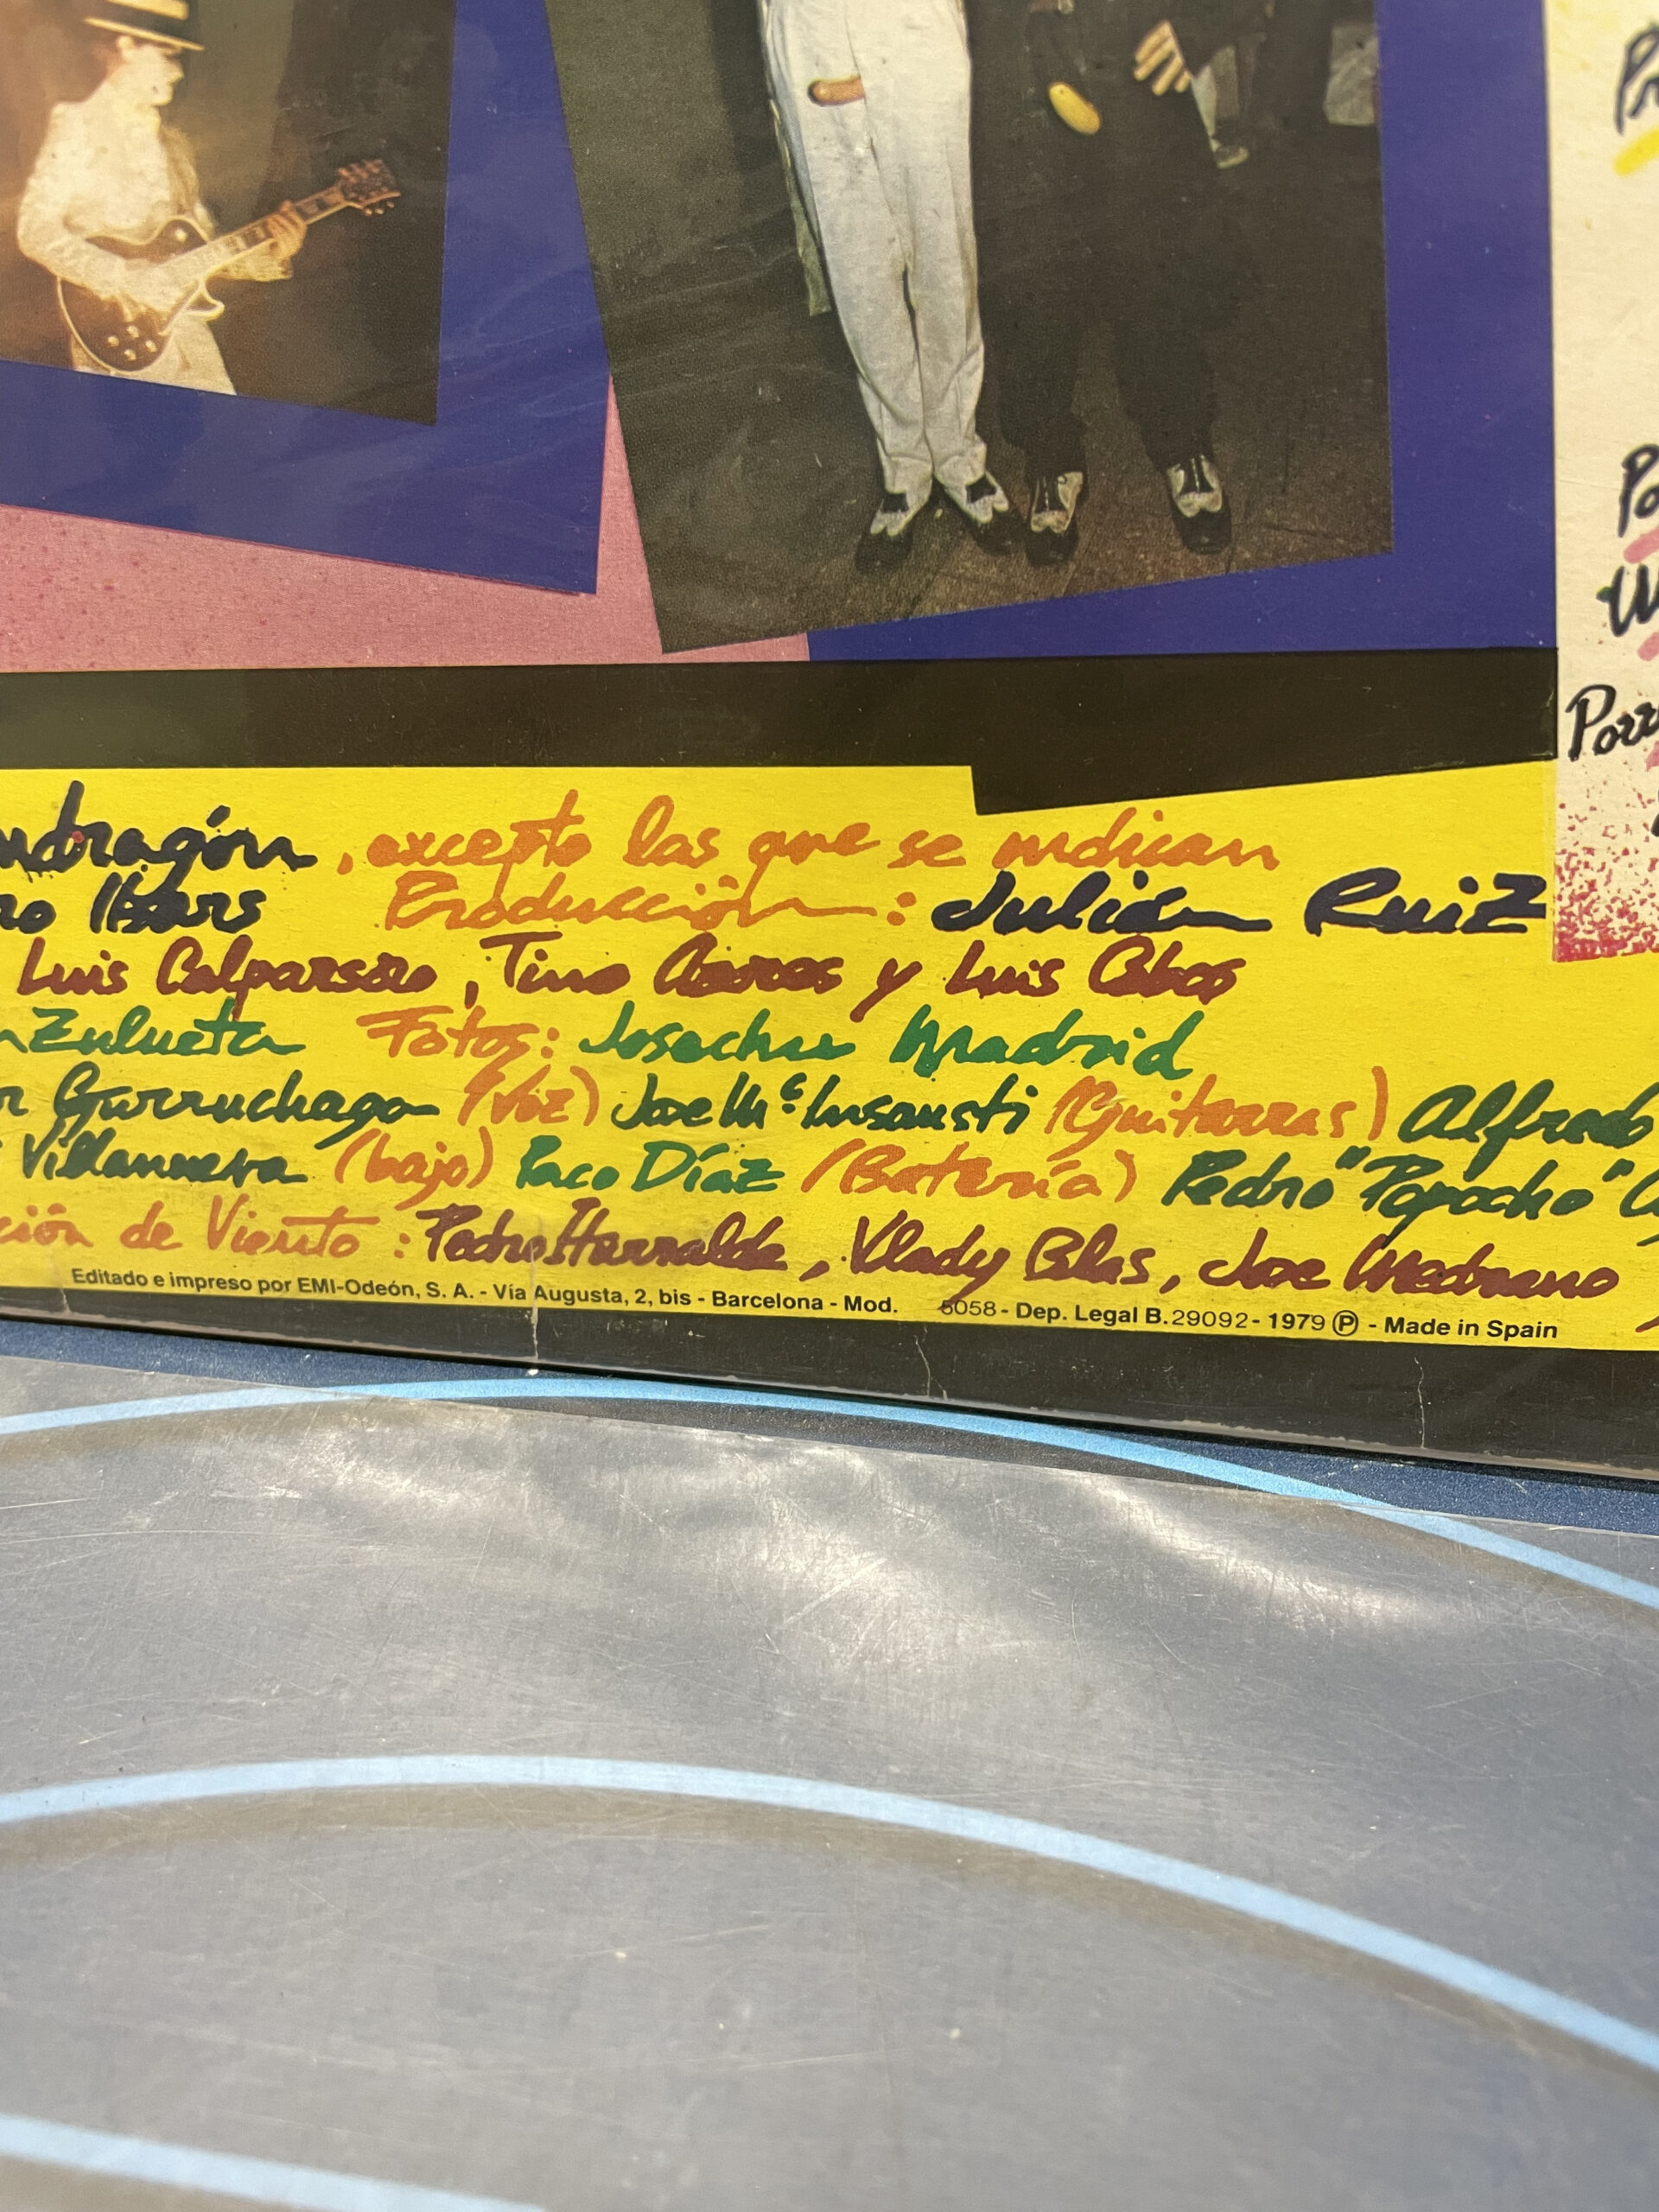 ndragón, excepto las que se indican
ro Ibars Producción: Julián Ruiz
Luis Calparsoro, Tino Azores y Luis Cobos
Zulueta Fotos: Josechu Madrid
Gurruchaga (Voz) Jose Mª Insausti (Guitarras) Alfredo
Villanueva (bajo) Paco Díaz (Batería) Pedro "Popocho"
ción de Viento: Pedro Iturralde, Vlady Blas, Jose Medrano
Editado e impreso por EMI-Odeón, S. A. - Vía Augusta, 2, bis - Barcelona - Mod. 5058 - Dep. Legal B. 29092 - 1979 Ⓟ - Made in Spain
Pr
Po
Porr